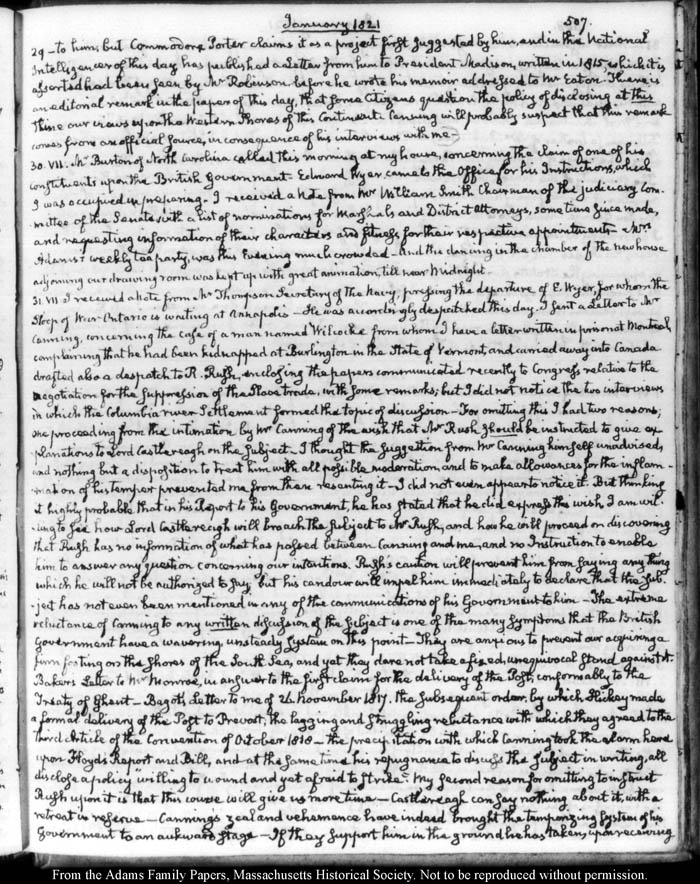 January 1821
507.
29 – to him, but Commodore Porter claims it as a project first suggested by him, and in the National
Intelligencer of this day has published a Letter from him to President Madison, written in 1815, which it is
asserted had been seen by Mr Robinson before he wrote his memoir addressed to Mr Eaton. There is
an editorial remark in the paper of this day, that some Citizens question the policy of disclosing at this
time our views upon the Western Shores of this Continent. Canning will probably suspect that this remark
comes from an official source, in consequence of his interviews with me –
30. VII. Mr Burton of North Carolina called this morning at my house, concerning the claim of one of his
constituents upon the British Government. Edward Wyer came to the Office for his Instructions, which
I was occupied in preparing. I received a Note from Mr William Smith Chairman of the judiciary Com-
mittee of the Senate, with a list of nominations for Marshals and District Attorneys, some time since made,
and requesting information of their characters and fitness for their respective appointments – Mrs
Adams's weekly tea party, was this Evening much crowded – And the dancing in the chamber of the new house
adjoining our drawing room was kept up with great animation, till near Midnight.
31. VII I received a Note from Mr Thompson Secretary of the Navy, pressing the departure of E. Wyer, for whom the
Sloop of War Ontario is waiting at Annapolis – He was accordingly despatched this day. I sent a Letter to Mr
Canning, concerning the case of a man named Wilcocke from whom I have a letter written in prison at Montreal,
complaining that he had been kidnapped at Burlington in the State of Vermont, and carried away into Canada
drafted also a despatch to R. Rush, enclosing the papers communicated recently to Congress, relative to the
negotiation for the suppression of the Slave trade, with some remarks; but I did not notice the two interviews
in which the Columbia river Settlement formed the topic of discussion – For omitting this I had two reasons;
one proceeding from the intimation by Mr Canning of the wish that Mr Rush should be instructed to give ex-
planations to Lord Castlereagh on the subject – I thought the suggestion from Mr Canning himself unadvised,
and nothing but a disposition to treat him with all possible moderation, and to make allowances for the inflam-
mation of his temper prevented me from then resenting it – I did not even appear to notice it. But thinking
it highly probable that in his Report to his Government, he has stated that he did express the wish, I am wil-
ling to see how Lord Castlereagh will broach the subject to Mr Rush, and how he will proceed on discovering
that Rush has no information of what has passed between Canning and me, and no Instruction to enable
him to answer any question concerning our intentions. Rush's caution will prevent him from saying any thing
which he will not be authorized to say, but his candour will impel him immediately to declare, that the sub-
ject has not even been mentioned in any of the communications of his Government to him – The extreme
reluctance of Canning to any written discussion of the subject is one of the many symptoms that the British
Government have a wavering, unsteady system on this point – They are anxious to prevent our acquiring a
firm footing on the shores of the South Sea, and yet they dare not take a fixed, unequivocal stand against it.
Bakers Letter to Mr Monroe, in answer to the first claim for the delivery of the Post, conformably to the
Treaty of Ghent – Bagot's Letter to me of 26 November 1817. the subsequent order, by which Hickey made
a formal delivery of the Post to Prevost, the lagging and struggling reluctance with which they agreed to the
third Article of the Convention of October 1818 – the precipitation with which Canning took the alarm here
upon Floyd's Report and Bill, and at the same time his repugnance to discuss the subject in writing, all
disclose a policy "willing to wound and yet afraid to strike." My second reason for omitting to instruct
Rush upon it is that this course will give us more time – Castlereagh can say nothing about it, with a
retreat in reserve – Canning's zeal and vehemence have indeed brought the temporizing system of his
Government to an aukward stage – If they support him in the ground he has taken, upon receiving
From the Adams Family Papers, Massachusetts Historical Society. Not to be reproduced without permission.